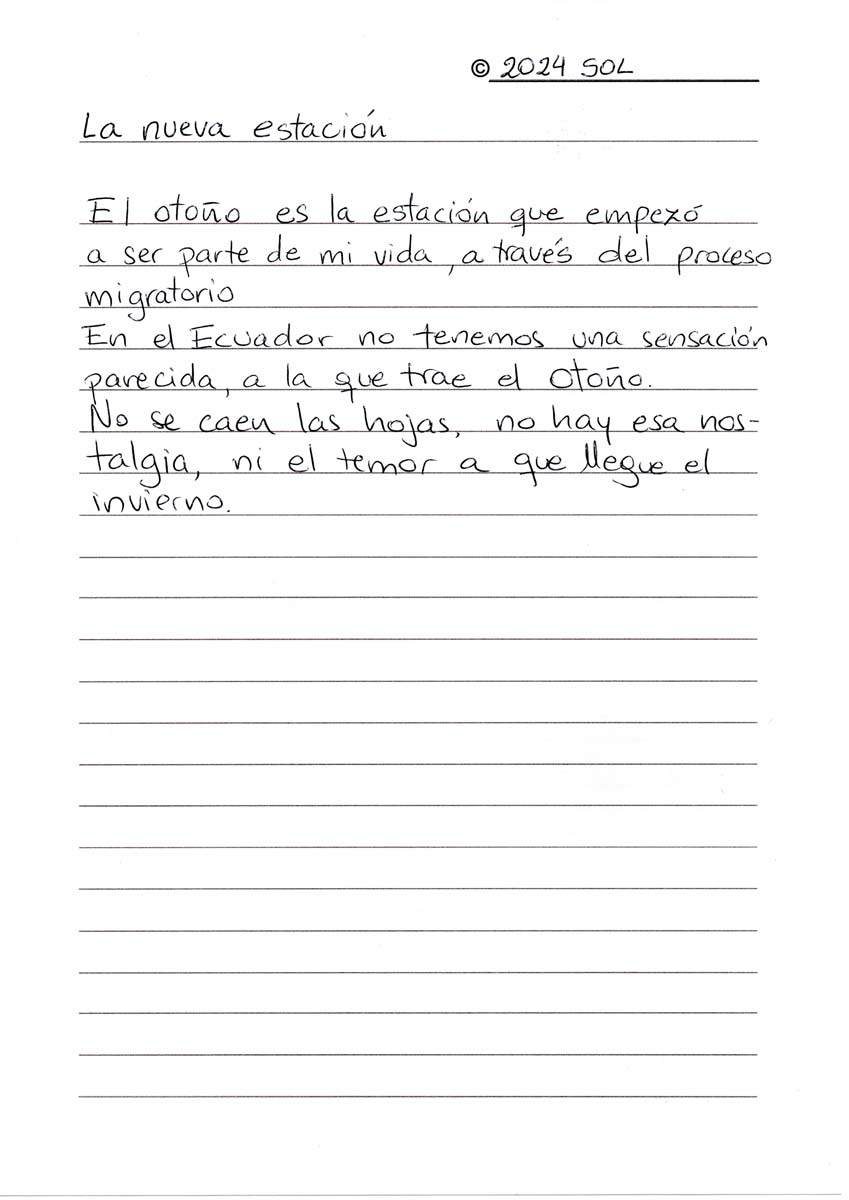 © 2024 SOL
La nueva estación
El otoño es la estación que empezó
a ser parte de mi vida, a través del proceso
migratorio
En el Ecuador no tenemos una sensación
parecida, a la que trae el otoño.
No se caen las hojas, no hay esa nos-
talgia, ni el temor a que llegue el
invierno.